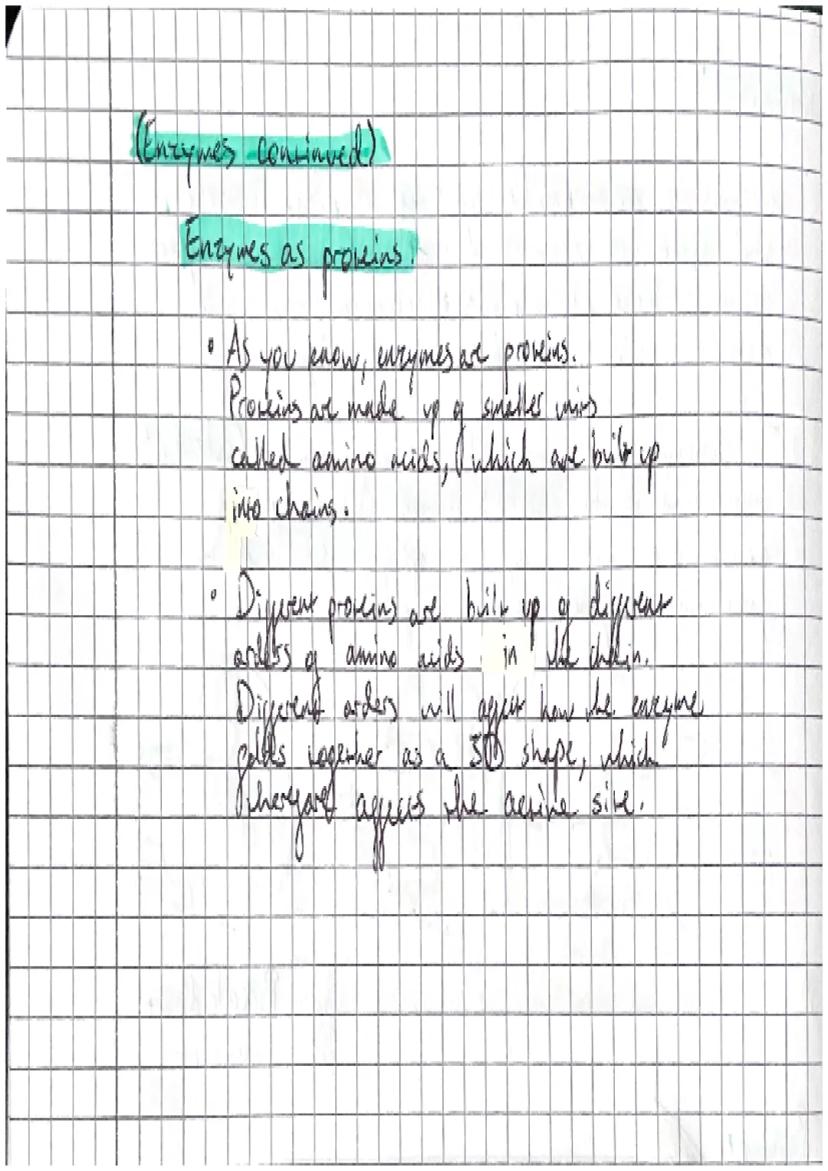 (Enzymes continued)
Enzymes as proteins.
• As you know, enzymes are proteins.
Proteins are made up of smaller units
called amino acids, which are built up
into chains.
• Different proteins are built up of different
orders of amino acids in the chain.
Different orders will affect how the enzyme
folds together as a 3D shape, which
therefore affects the active site.